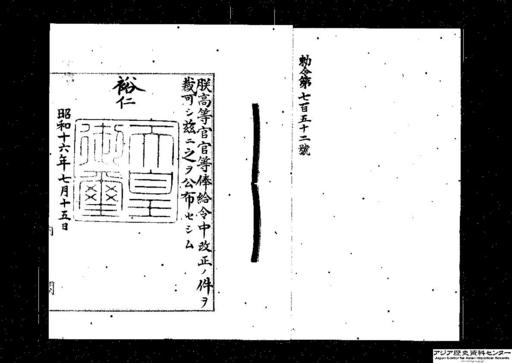 勅令第七百五十二號
朕高等官官等俸給令中改正ノ件ヲ
裁可シ茲ニ之ヲ公布セシム
裕仁
天皇御璽
昭和十六年七月十五日
アジア歴史資料センター
Japan Center for Asian Historical Records